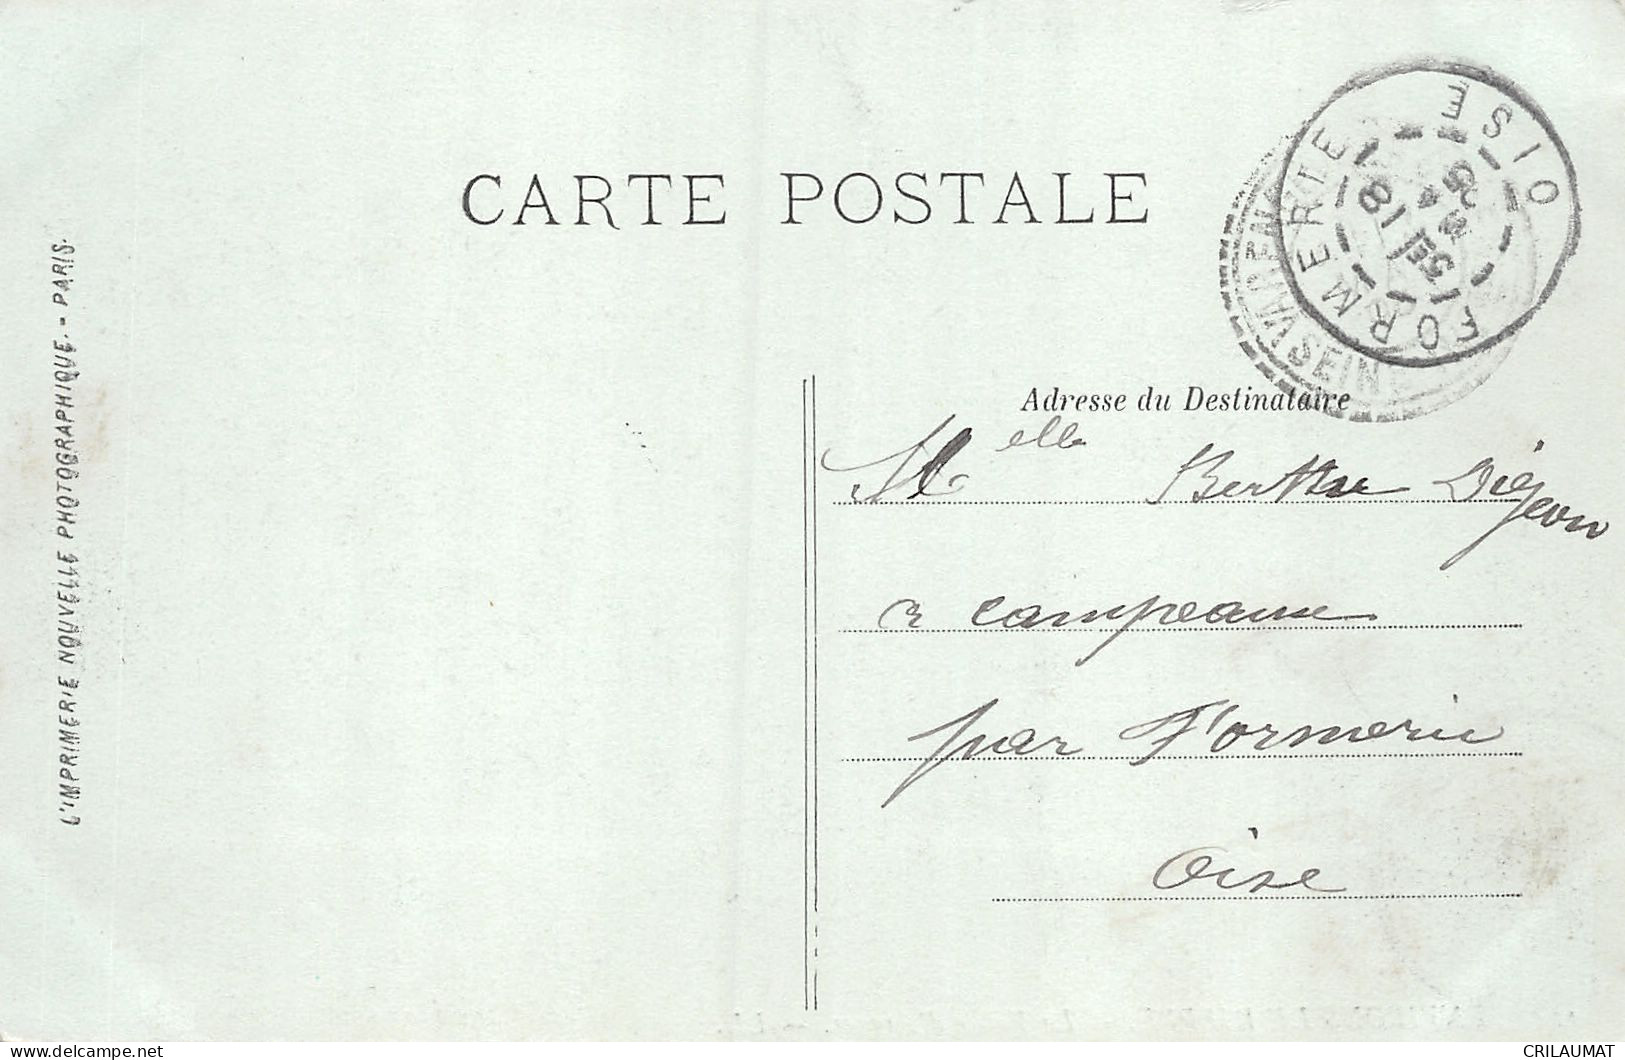 CARTE POSTALE
FORMERIE
OISE
18
SEINE
Adresse du Destinataire
Melle Berthe Digeon
a campeaux
par Formerie
Oise
L'IMPRIMERIE NOUVELLE PHOTOGRAPHIQUE. - PARIS.
delcampe.net
CRILAUMAT